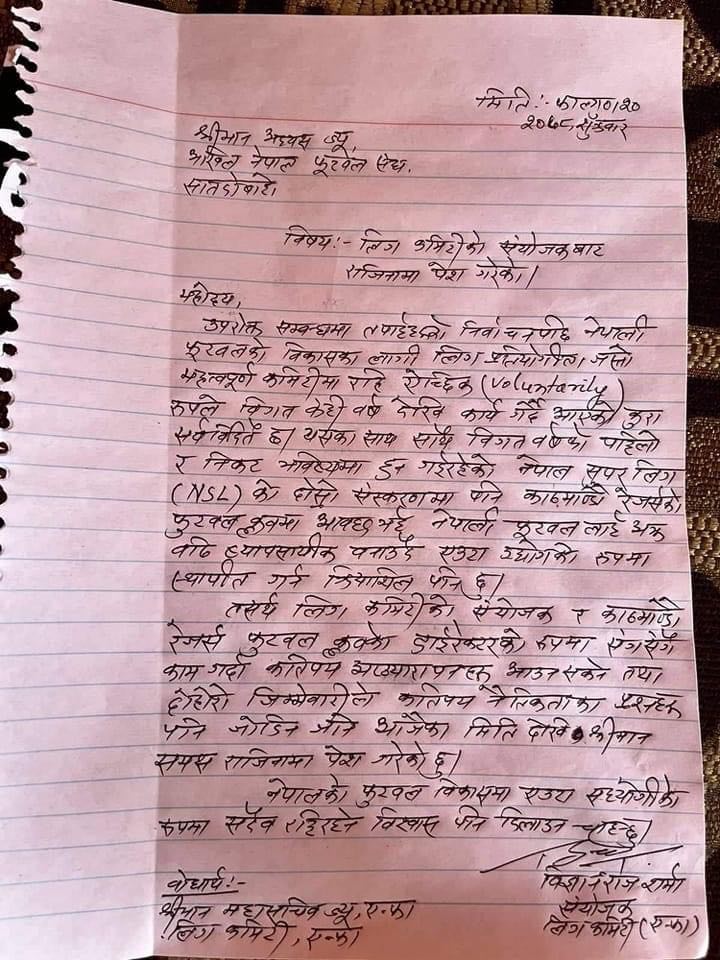 मिति:- फाल्गुण २०
२०७८, शुक्रवार
श्रीमान अध्यक्ष ज्यू,
अखिल नेपाल फूटबल संघ.
सातदोबाटो
विषय:- लिग कमिटीको संयोजकबाट
राजिनामा पेश गरेको।
महोदय,
उपरोक्त सम्बन्धमा तपाईहरुको निर्वाचनपछि नेपाली
फूटबलको विकासका लागी लिग प्रतियोगीता जस्तो
महत्वपूर्ण कमिटीमा राहि ऐच्छिक (voluntarily)
रुपले विगत केही वर्ष देखि कार्य गर्दै आएको कुरा
सर्वविदितै छ। यसका साथ साथै विगत वर्षका पहिलो
र निकट भविष्यमा हुन गईरहेको नेपाल सुपर लिग
(NSL) को दोस्रो संस्करणमा पनि काठमाण्डौ रेजर्सको
फुटबल क्लबमा आवद्ध भई नेपाली फूटबल लाई अझ
बढि व्यापसायीक बनाउँदै एउटा उद्योगको रुपमा
स्थापीत गर्न क्रियाशिल पनि छु।
तसर्थ लिग कमिटीको संयोजक र काठमाण्डौ
रेजर्स फुटबल क्लबको डाईरेक्टरको रुपमा संगसंगै
काम गर्दा कतिपय अप्ठ्यारापनहरु आउन सक्ने तथा
दोहोरो जिम्मेवारीले कतिपय नैतिकताका प्रश्नहरु
पनि जोडिने भने आजैका मिति देखि श्रीमान
समक्ष राजिनामा पेश गरेको छु।
नेपालको फुटबल विकासमा एउटा सहयोगीको
रुपमा सदैव रहिरहने विश्वास पनि दिलाउन चाहन्छु।
बोधार्थ:-
श्रीमान महासचिव ज्यू, ए.न्फा
लिग कमिटी, ए.न्फा
विज्ञानराज शर्मा
संयोजक
लिग कमिटी (ए.न्फा)